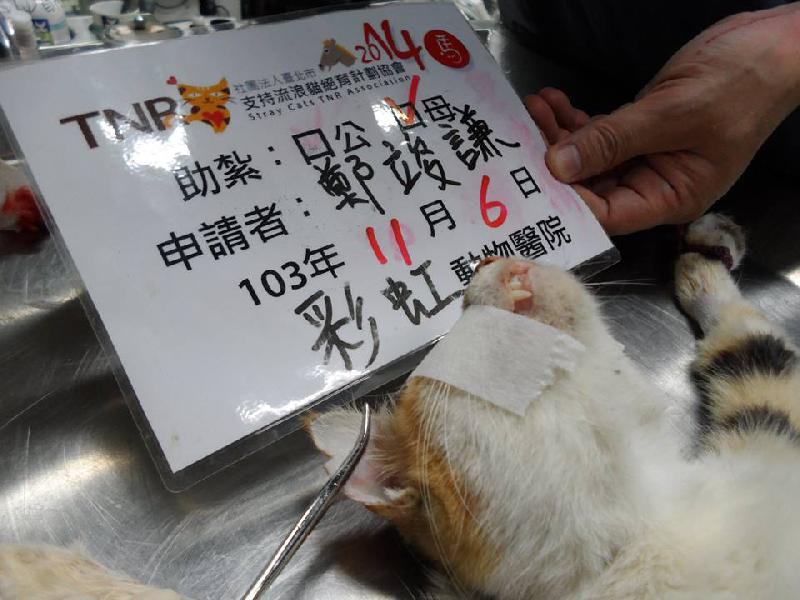 TNR 社團法人臺北市 2014 馬
支持流浪貓絕育計劃協會
Stray Cats TNR Association
助紮：口公 口母
申請者：鄭竣謙
103年 11月 6日
彩虹 動物醫院